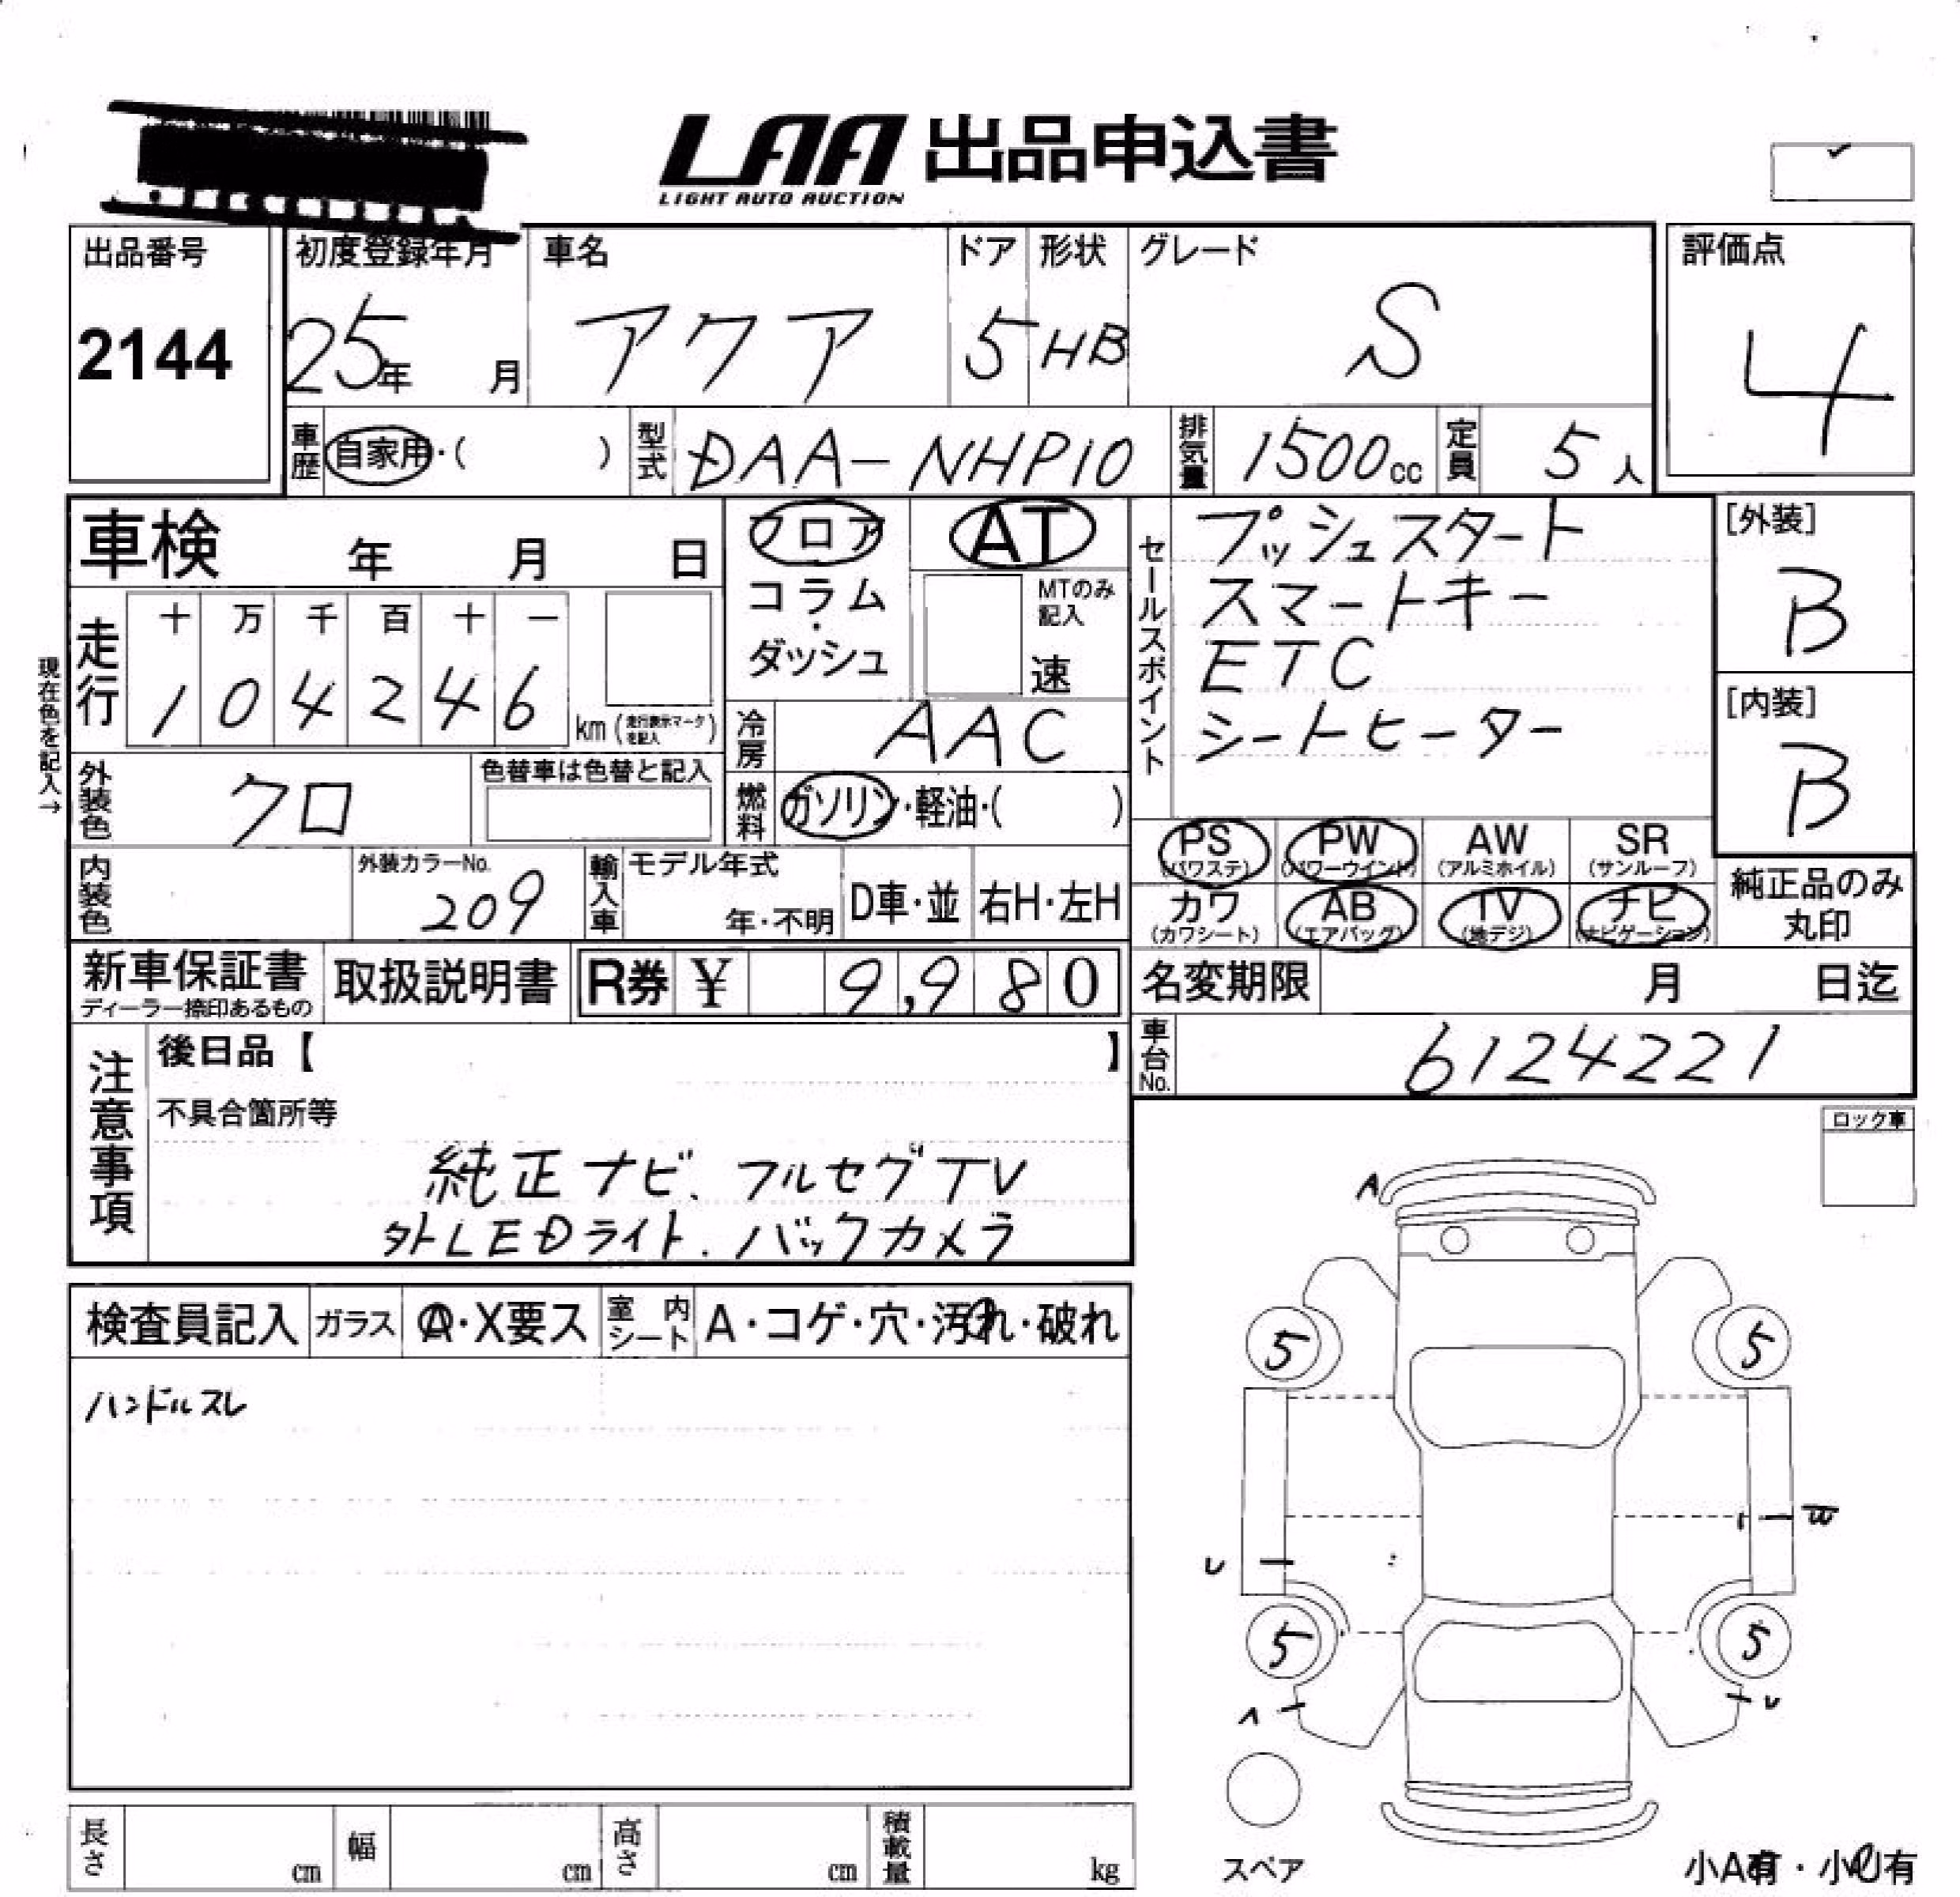 LAA 出品申込書
LIGHT AUTO AUCTION
出品番号
2144
初度登録年月
25年 月
車名
アクア
ドア
5
形状
HB
グレード
S
評価点
4
車歴
自家用・( )
型式
DAA-NHP10
排気量
1500cc
定員
5人
車検 年 月 日
フロア
コラム
・
ダッシュ
AT
MTのみ記入
速
セールスポイント
プッシュスタート
スマートキー
ETC
シートヒーター
[外装]
B
[内装]
B
現在色を記入→
走行
十 万 千 百 十 一
1 0 4 2 4 6
km(走行表示マークを記入)
冷房
AAC
外装色
クロ
色替車は色替と記入
燃料
ガソリン・軽油・( )
PS (パワステ)
PW (パワーウインド)
AW (アルミホイル)
SR (サンルーフ)
カワ (カワシート)
AB (エアバッグ)
TV (地デジ)
ナビ (ナビゲーション)
純正品のみ
丸印
内装色
外装カラーNo.
209
輸入車
モデル年式
年・不明
D車・並
右H・左H
新車保証書
ディーラー捺印あるもの
取扱説明書
R券 ¥ 9,980
名変期限 月 日迄
車台No.
6124221
注意事項
後日品【 】
不具合箇所等
純正ナビ、フルセグTV
外LEDライト、バックカメラ
ロック車
検査員記入
ガラス
A・X要ス
室内シート
A・コゲ・穴・汚れ・破れ
ハンドルスレ
A
5
5
W
U
5
5
A
U
スペア
長さ cm
幅 cm
高さ cm
積載量 kg
小A有・小U有